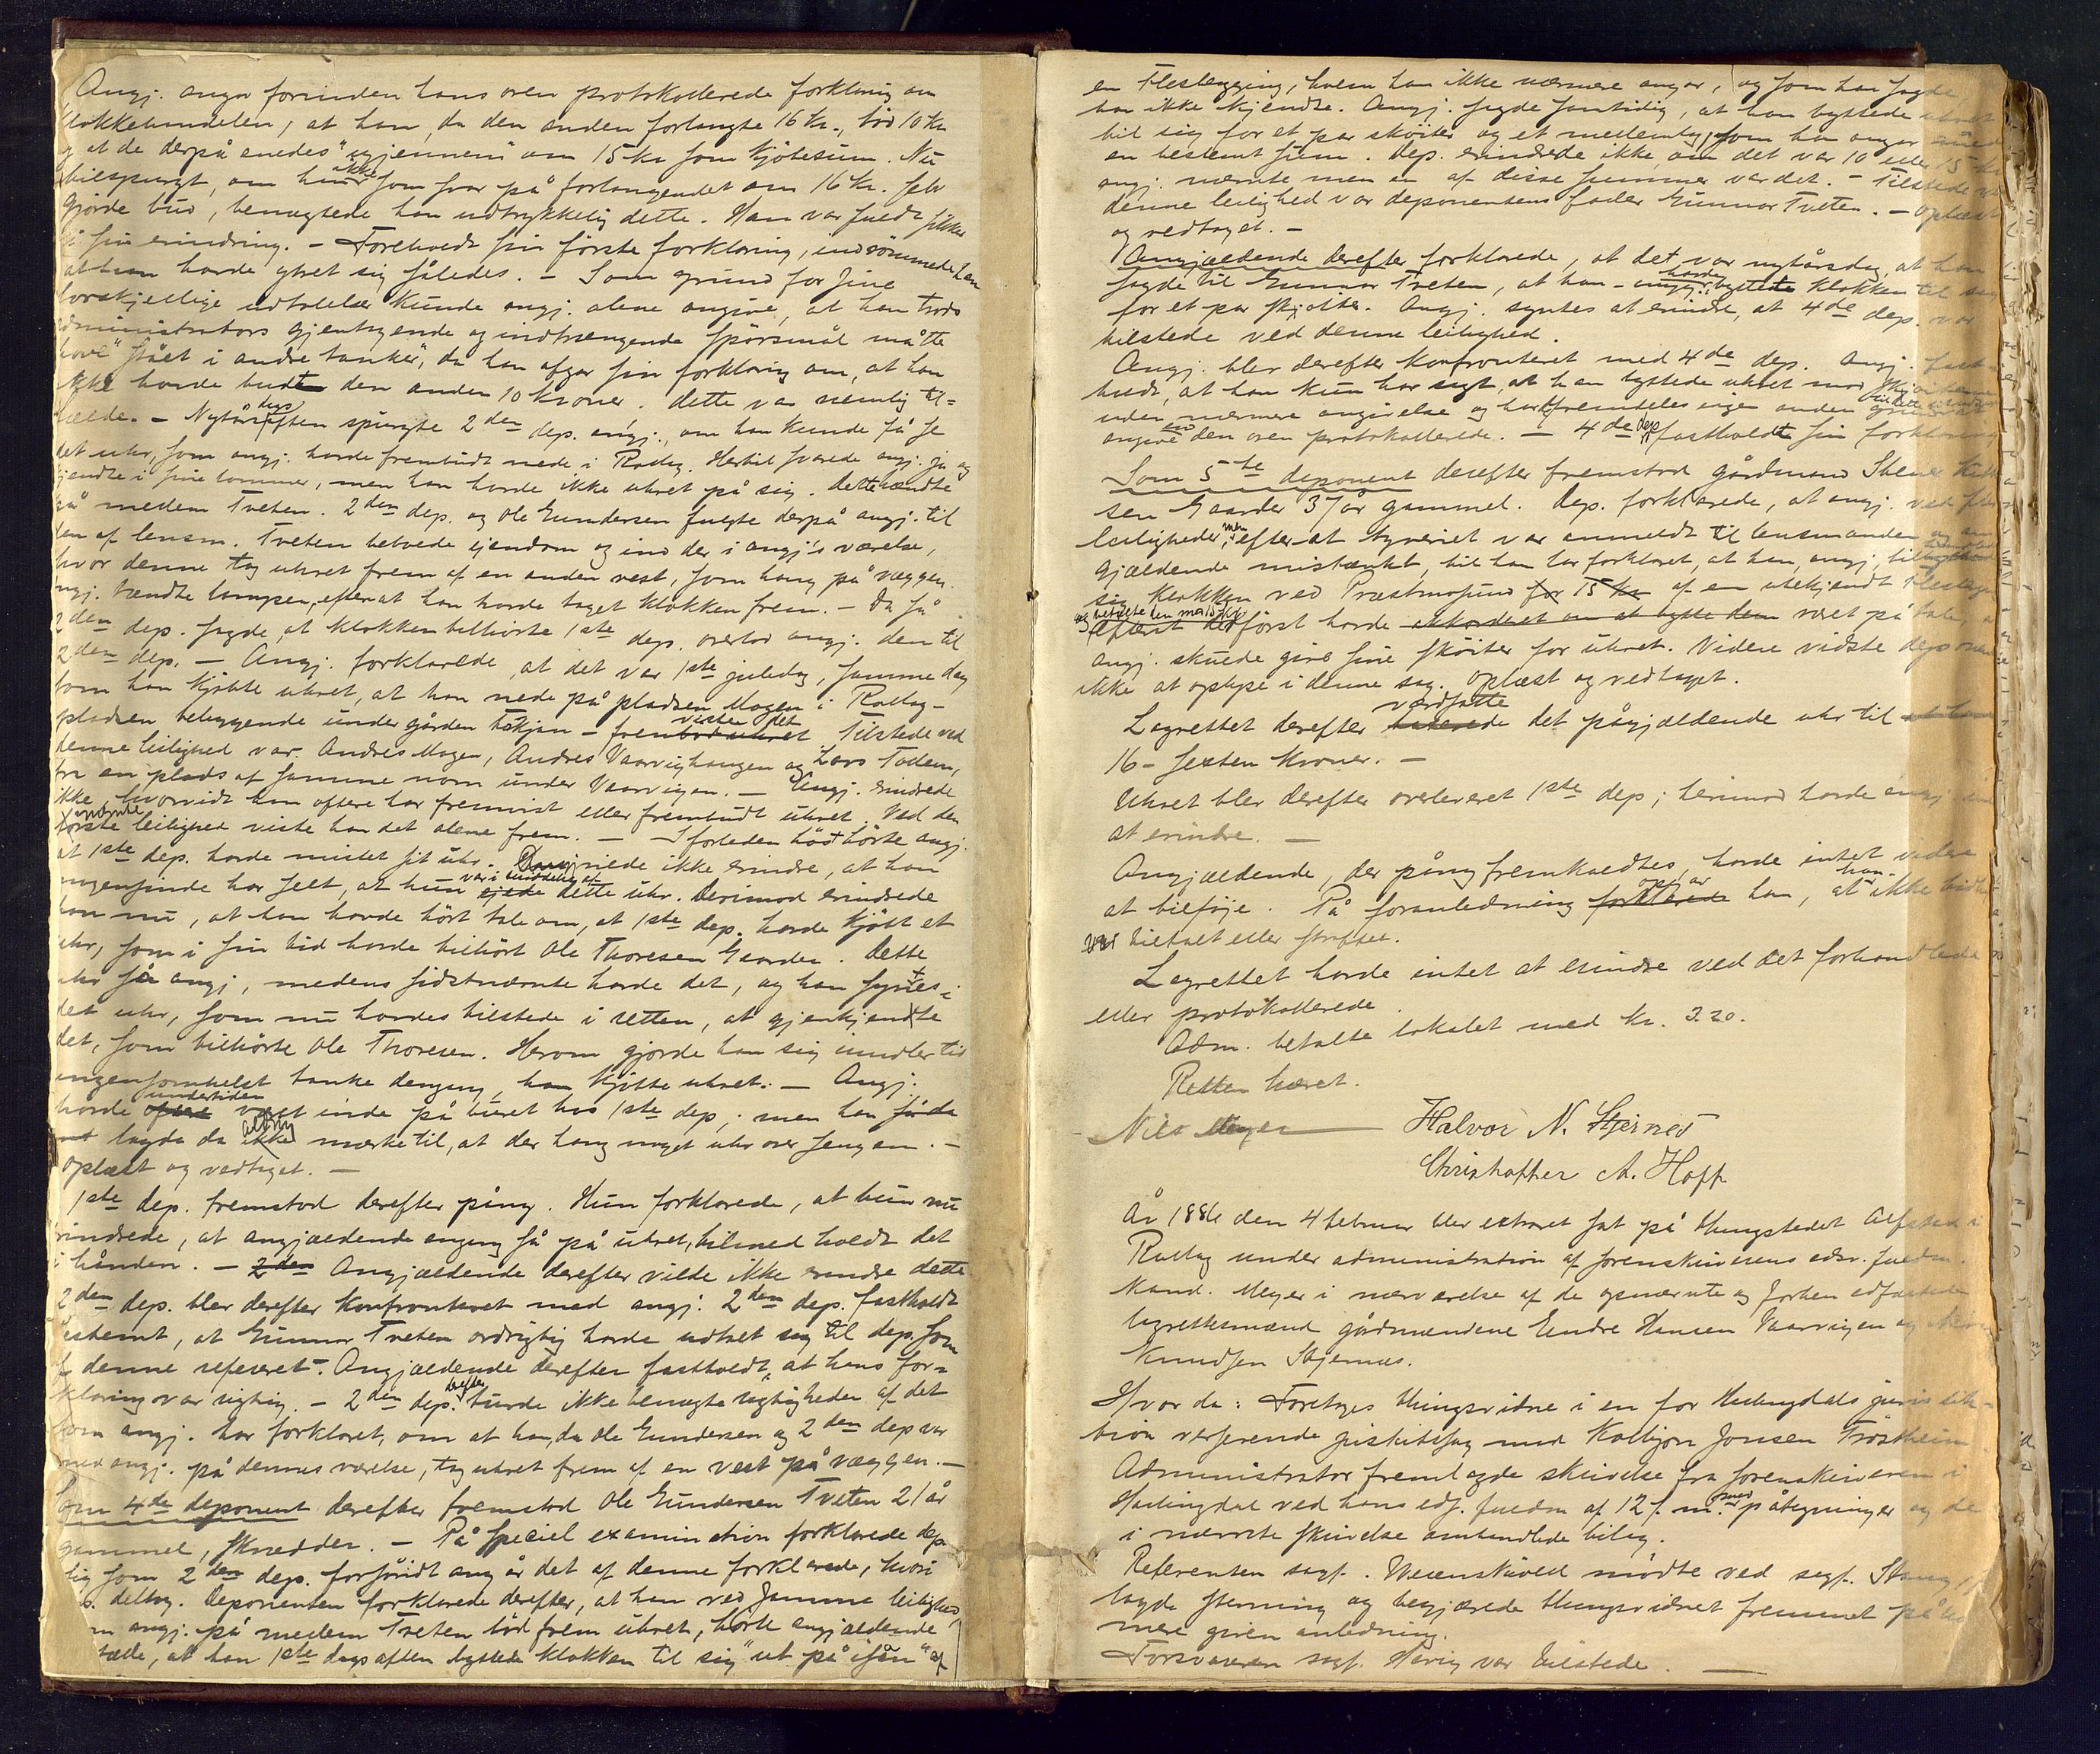 Angj. angav forinden hans oven protokollerede forklaring om
klokkehandelen, at han, da den anden forlangte 16 Kr., bød 10 Kr
og at de derpå enedes "igjennem" om 15 Kr som Kjøbesum. Nu
tilspurgt, om han ikke som svar på forlangendet om 16 Kr. selv
gjorde bud, benægtede han udtrykkelig dette. Han var fuldt sikker
i sin erindring. - Foreholdt sin første forklaring, indrömmede han
at han havde ytret sig således. - Som grund for sine
forskjellige udtalelser kunde angj. alene angive, at han trods
administrators gjentagende og indtrængende spörsmål måtte
have "stået i andre tanker", da han afgav sin forklaring om, at han
ikke havde budt den anden 10 Kroner. dette var nemlig til-
fælde. - Nytårsdags aften spurgte 2den dep. angj., om han kunde få se
det uhr, som angj. havde frembudt nede i Rollag. Hertil svarede angj. ja og
kjendte i sine lommer, men han havde ikke uhret på sig. Dette hændte
på medem Tveten. 2den dep. og Ole Gundersen fulgte derpå angj. til
den af lensm. Tveten beboede ejendom og ind der i angj's værelse,
hvor denne tog uhret frem af en anden vest, som hang på væggen.
Angj. tændte lampen, efterat han havde taget klokken frem. - Da så
2den dep. sagde, at klokken tilhørte 1ste dep. overlod angj. den til
2den dep. - Angj. forklarede, at det var 1ste juledag, samme dag
som han kjøbte uhret, at han nede på pladsen Mogen i Rollag -
pladsen beliggende under gården - viste det frem. Tilstede ved
denne leilighed var Andres Mogen, Andres Vaarvighaugen og Lars Todem,
fra en plads af samme navn under Vaarvigen. - Angj. erindrede
ikke hvorvidt han oftere har fremvist eller frembudt uhret. Ved den
nævnte første leilighed viste han det alene frem. - I forleden höst hörte angj.
at 1ste dep. havde mistet sit uhr. Angj. vilde ikke erindre, at han
nogensinde har seet, at hun var i besiddelse af dette uhr. Derimod erindrede
han nu, at han havde hört tale om, at 1ste dep. havde kjöbt et
uhr, som i sin tid havde tilhört Ole Thoresen Gaarden. Dette
uhr så angj., medens sidstnævnte havde det, og han syntes i
det uhr, som nu havdes tilstede i retten, at gjenkjende
det, som tilhörte Ole Thoresen. Herom gjorde han sig imidlertid
ingensomhelst tanke dengang, han kjöbte uhret. - Angj.
havde undertiden været inde på buret hos 1ste dep., men han
lagde da aldrig mærke til, at der hang noget uhr over sengen. -
Oplæst og vedtaget. -
1ste dep. fremstod derefter påny. Hun forklarede, at hun nu
erindrede, at angjældende engang så på uhret, tilmed holdt det
i hånden. - 2den Angjældende derefter vilde ikke erindre dette
2den dep. blev derefter konfronteret med angj. 2den dep. fastholdt
bestemt, at Gunnar Tveten ordrigtig havde udtalt sig til dep. som
af denne refereret. Angjældende derefter fastholdt, at hans for-
klaring var rigtig. - 2den dep. derefter turde ikke benægte rigtigheden af det
som angj. har forklaret, om at han, da Ole Gundersen og 2den dep var
med angj. på dennes værelse, tog uhret frem af en vest på væggen. -
Som 4de deponent derefter fremstod Ole Gundersen Tveten 21 år
gammel, skrædder. - På speciel examination forklarede dep.
sig som 2den dep. forsåvidt angår det af denne forklarede, hvori
dep. deltog. Deponenten forklarede derefter, at han ved samme leilighed,
som angj. på medem Tveten böd frem uhret, hörte angjældende
fortælle, at han 1ste dags aften byttede klokken til sig "ut på isen" af
en Flesbegging, hvem han ikke nærmere angav, og som han sagde
han ikke kjendte. Angj. sagde samtidig, at han byttede uhret
til sig for et par sköiter og et mellemlæg, som han angav
en bestemt sum. Dep. erindrede ikke, om det var 10 eller 15 kr
angj. nævnte men en af disse summer var det. - Tilstede ved
denne leilighed var deponentens fader Gunnar Tveten. - Oplæst
og vedtaget. -
Angjældende derefter forklarede, at det var nytårsdag, at han
sagde til Gunnar Tveten, at han - angj. - havde byttet klokken til sig
for et par skjöiter. Angj. syntes at erindre, at 4de dep. var
tilstede ved denne leilighed.
Angj. blev derefter konfronteret med 4de dep. Angj. fast-
holdt, at han kun har sagt, at han byttede uhret mod skjöiterne
uden nærmere angivelse og har fremdeles ingen anden grund at
angive end den oven protokollerede. - 4de dep. fastholdt sin forklaring
Som 5te deponent derefter fremstod gårdmand Stener
sen Gaarder 37 år gammel. Dep. forklarede, at angj. ved
leiligheder, men efterat tyveriet var anmeldt til lensmanden og an
gjældende mistænkt, til ham har forklaret, at han, angj.,
sig klokken ved Præstmosund for 15 kr af en ubekjendt Flesbegging
og betalte den med 15 kr
Efterat de först havde akkorderet om at bytte dem været på tale, at
angj. skulde give sine sköiter for uhret. Videre vidste deponenten
ikke at oplyse i denne sag. Oplæst og vedtaget.
Lagrettet derefter værdsatte det pågjældende uhr til
16 - sexten Kroner. -
Uhret blev derefter overleveret 1ste dep.; herimod havde angj. intet
at erindre. -
Angjældende, der påny fremkaldtes, havde intet videre
at tilføje. På foranledning opgav han, at han ikke tidligere
var tiltalt eller straffet.
Lagrettet havde intet at erindre ved det forhandlede
eller protokollerede.
Adm. betalte lokalet med Kr. 3.20.
Retten hævet.
Nils Meyer Halvor N. Stjernes
Christopher A. Hoff
År 1886 den 4 februar blev extraret sat på thingstedet Alfstad i
Rollag under administration af sorenskriverens edsv. fuldm.
Kand. Meyer i nærværelse af de opnævnte og forhen edfæstede
lagrettesmænd gårdmændene Endre Hansen Vaarvigen og
Knudsen Stjernes.
Hvor da: Foretoges thingsvidne i en for Hallingdals jurisdik-
tion verserende justitssag mod Kolbjørn Jonsen Tröstheim
Administrator fremlagde skrivelse fra sorenskriveren i
Hallingdal ved hans eds. fuldm af 12 f. m. med påtegninger og de
i nævnte skrivelse omhandlede bilag.
Referenten sagf. Weienskivold mödte ved sagf. Stang,
lagde stevning og begjærede thingsvidnet fremmet på
mere given anledning.
Forsvareren sagf. Hövig var tilstede. -